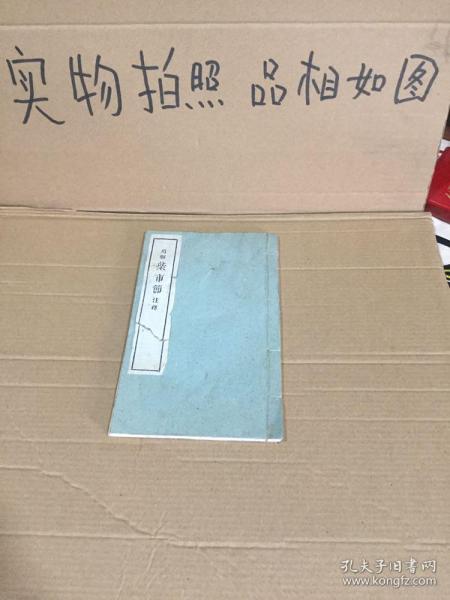 实物拍照 品相如图
孔夫子旧书网
www.kongfz.com